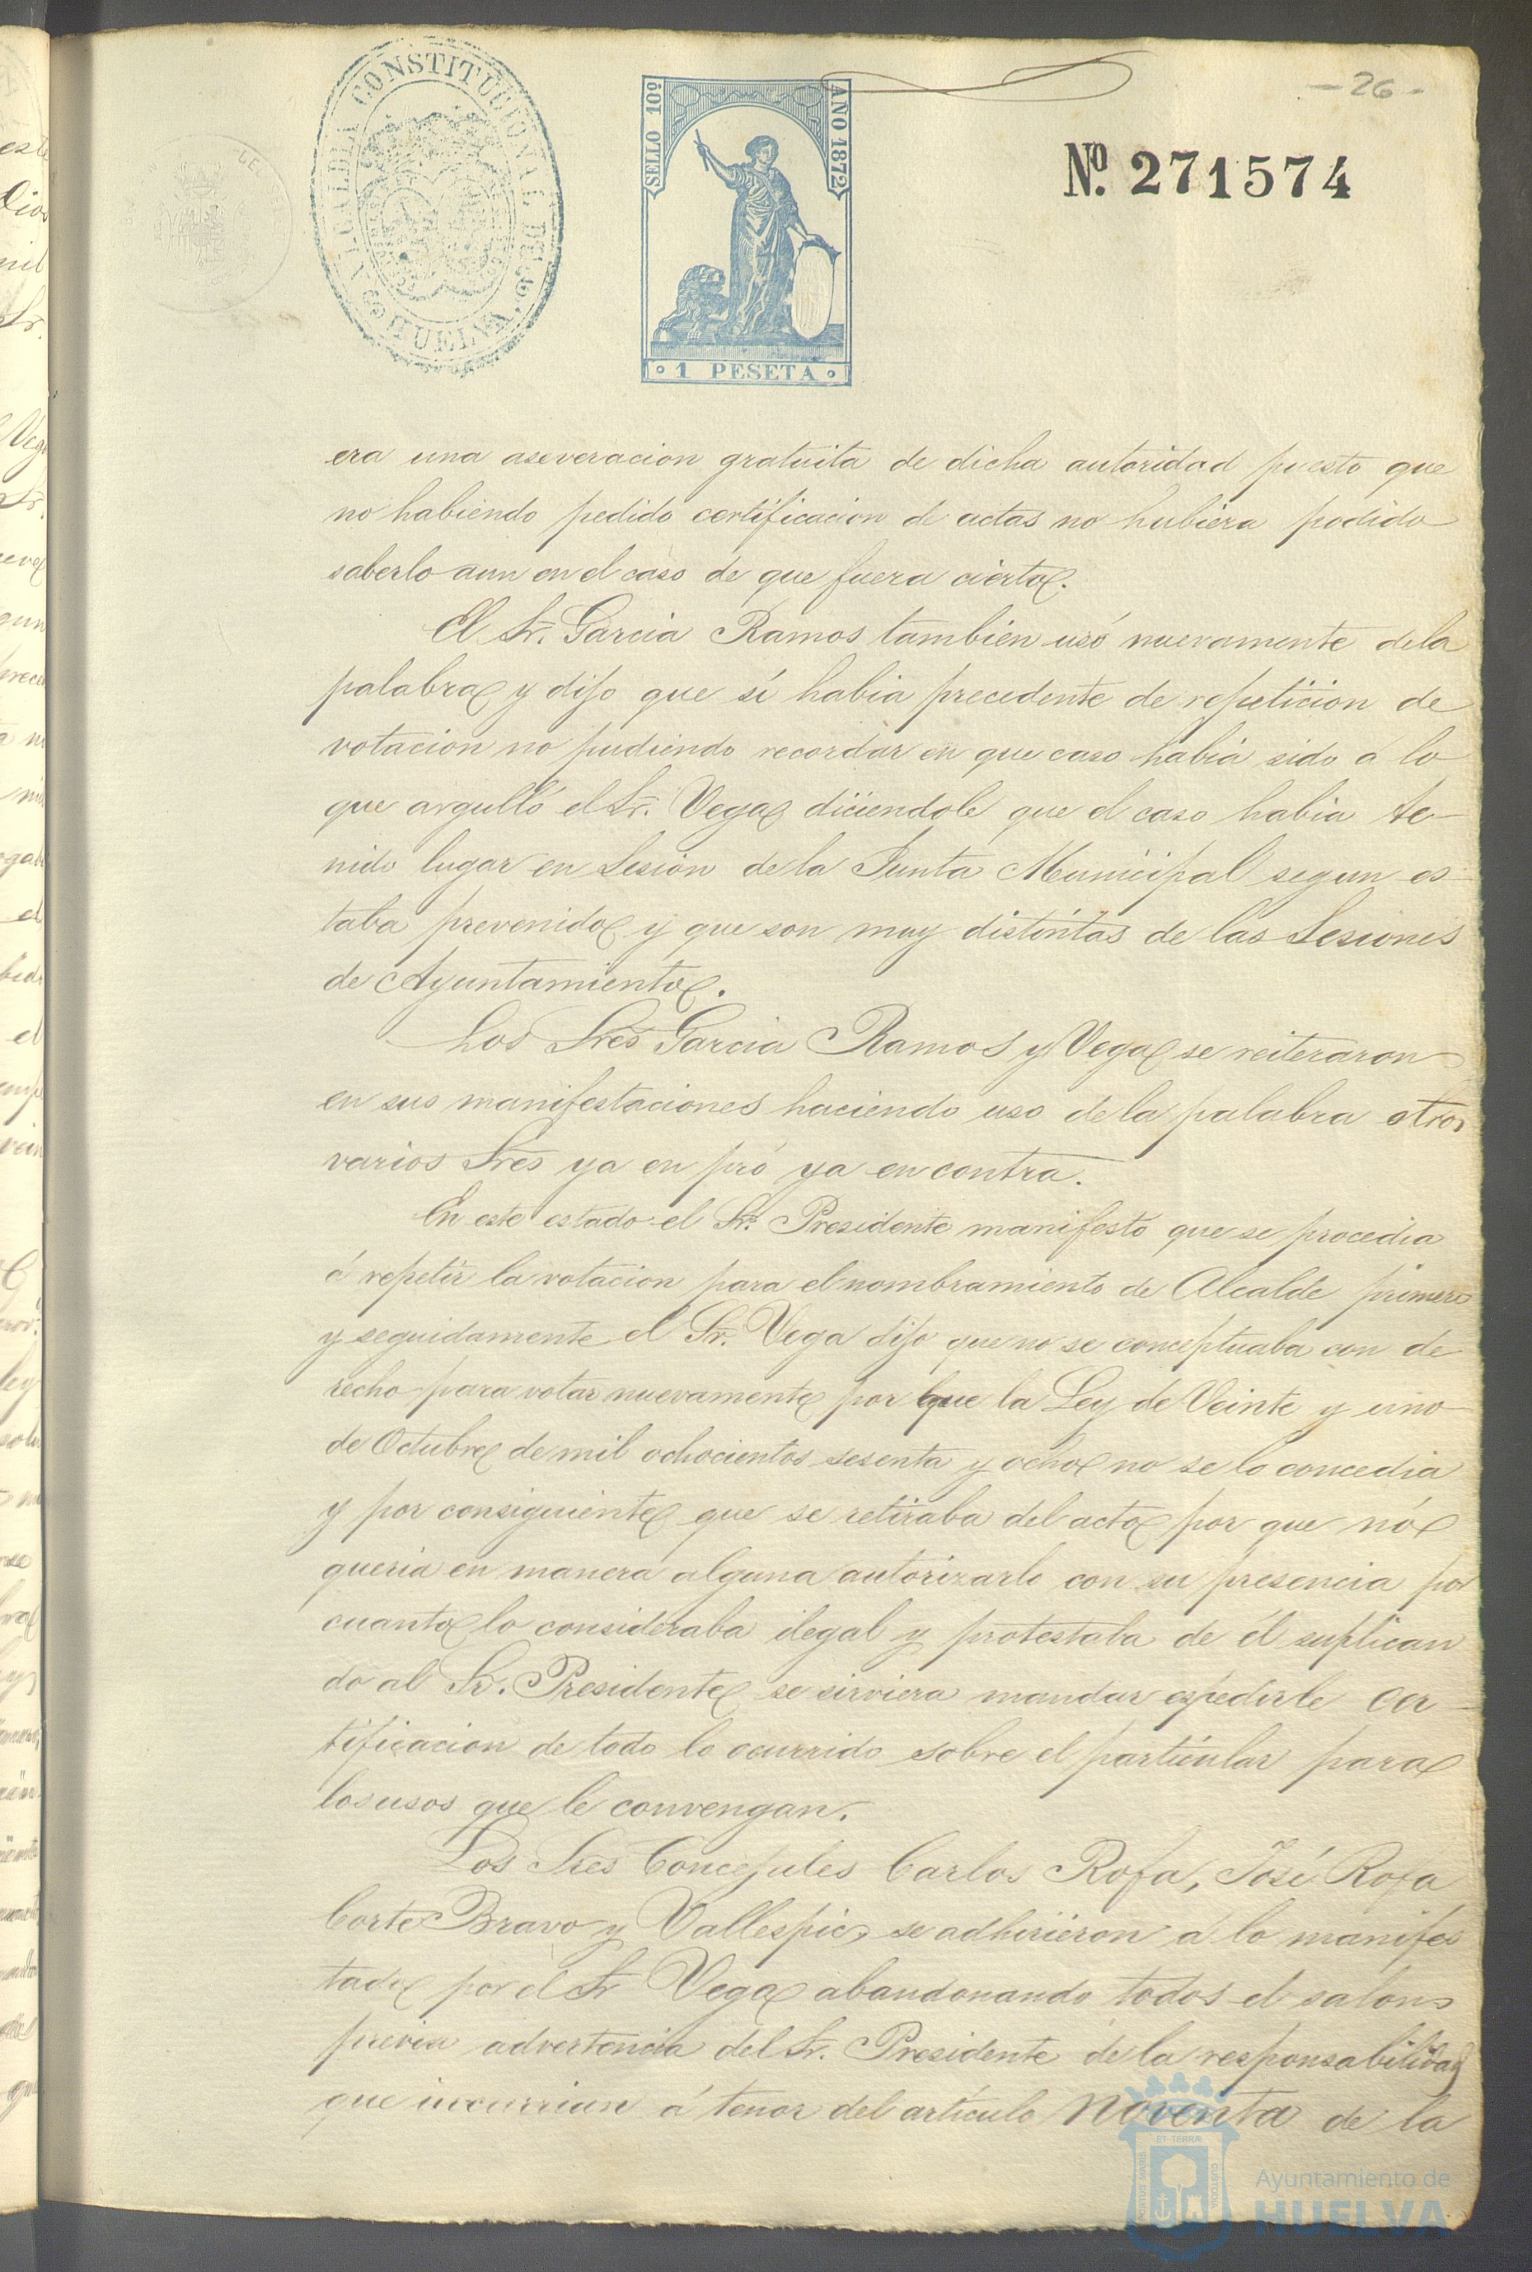 - 26 -
ALCALDIA CONSTITUCIONAL DE HUELVA
SELLO 10º
AÑO 1872
1 PESETA
Nº. 271574
era una aseveracion gratuita de dicha autoridad puesto que
no habiendo pedido certificacion de actas no hubiera podido
saberlo aun en el caso de que fuera cierto.
El Sr. Garcia Ramos tambien usó nuevamente dela
palabra y dijo que sí habia precedente de repeticion de
votacion no pudiendo recordar en que caso habia sido á lo
que argulló el Sr. Vega diciendole que el caso habia te-
nido lugar en Sesion de la Junta Municipal segun es-
taba prevenido y que son muy distintas de las Sesiones
de Ayuntamiento.
Los Sres Garcia Ramos y Vega se reiteraron
en sus manifestaciones haciendo uso de la palabra otros
varios Sres ya en pró ya en contra.
En este estado el Sr. Presidente manifestó que se procedia
á repetir la votacion para el nombramiento de Alcalde primero
y seguidamente el Sr. Vega dijo que no se conceptuaba con de
recho para votar nuevamente por que la Ley de Veinte y uno
de Octubre de mil ochocientos sesenta y ocho no se lo concedia
y por consiguiente que se retiraba del acto por que nó
queria en manera alguna autorizarlo con su presencia por
cuanto lo consideraba ilegal y protestaba de él suplican
do al Sr. Presidente se sirviera mandar espedirle cer-
tificacion de todo lo ocurrido sobre el particular para
los usos que le convengan.
Los Sres Concejales Carlos Rofa, José Rofa
Corte Bravo y Vallespin se adhirieron á lo manifes
tado por el Sr Vega abandonando todos el salon
previa advertencia del Sr. Presidente de la responsabilidad
que incurrian á tenor del artículo noventa de la
Ayuntamiento de
HUELVA